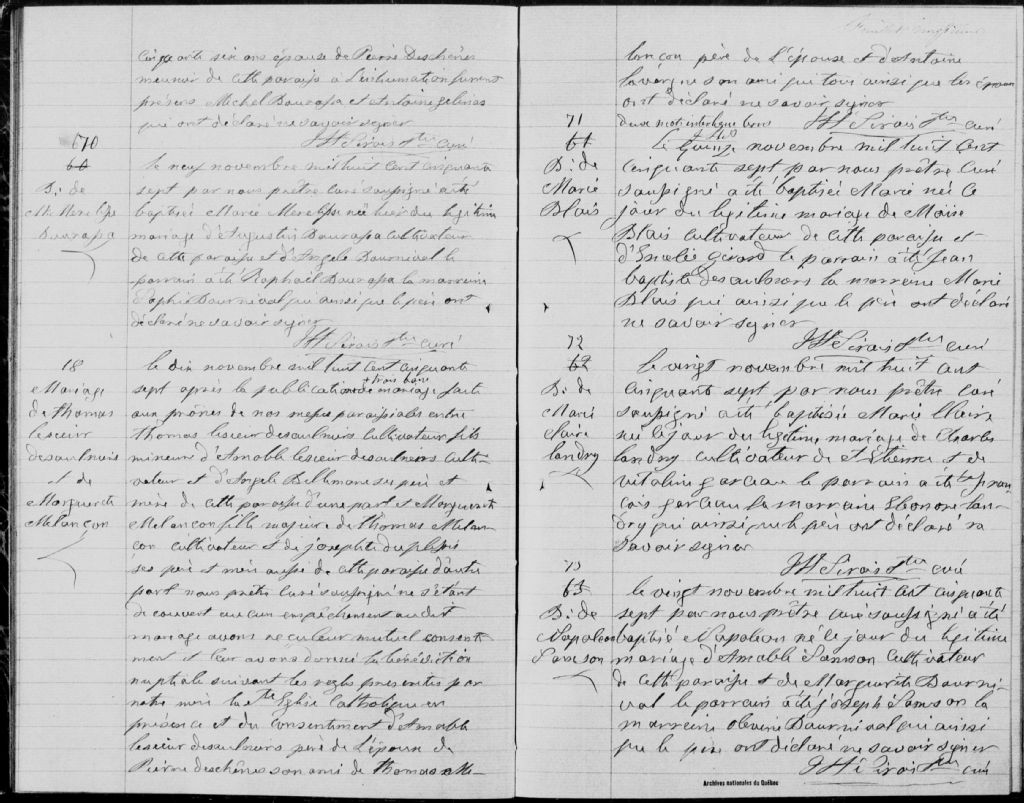 cinquante six ans épouse de Pierre Deschênes
meunier de cette paroisse à l'inhumation furent
présens Michel Bourassa et Antoine Gelinas
qui ont déclaré ne savoir signer
JH Sirois Ptre curé
70
60
B: de
M. Merelise
Bourassa
le neuf novembre mil huit cent cinquante
sept par nous prêtre curé soussigné a été
baptisée Marie Merelise née hier du légitime
mariage d'Augustin Bourassa cultivateur
de cette paroisse et d'Angele Bournival le
parrain a été Raphaël Bourassa la marraine
Sophie Bournival qui ainsi que le père ont
déclaré ne savoir signer
JH Sirois Ptre curé
18
Mariage
de Thomas
Lesieur
desaulniers
et de
Marguerite
Melançon
le dix novembre mil huit cent cinquante
sept après la publication de + trois bans mariage faite
aux prônes de nos messes paroissiales entre
Thomas Lesieur desaulniers cultivateur fils
mineur d'Amable Lesieur desaulniers culti-
vateur et d'Angele Bellemare ses père et
mère de cette paroisse d'une part et Marguerite
Melançon fille majeure de Thomas Melan-
çon cultivateur et de Josephte duplessis
ses père et mère aussi de cette paroisse d'autre
part nous prêtre curé soussigné ne s'étant
découvert aucun empêchement au dit
mariage avons reçu leur mutuel consente-
ment et leur avons donné la bénédiction
nuptiale suivant les règles prescrites par
notre mère la Ste Eglise Catholique en
présence et du consentement d'Amable
Lesieur desaulniers père de l'époux de
Pierre deschênes son ami de Thomas Me-
lançon père de l'épouse et d'Antoine
Lavergne son ami qui tous ainsi que les époux
ont déclaré ne savoir signer
deux mots interligne bons JH Sirois Ptre curé
71
61
B: de
Marie
Blais
Le quinze novembre mil huit cent
cinquante sept par nous prêtre curé
soussigné a été baptisée Marie née ce
jour du légitime mariage de Moïse
Blais cultivateur de cette paroisse et
d'Emelie Girard le parrain a été Jean
baptiste desaulniers la marraine Marie
Blais qui ainsi que le père ont déclaré
ne savoir signer
JH Sirois Ptre curé
72
62
B: de
Marie
Claire
Landry
le vingt novembre mil huit cent
cinquante sept par nous prêtre curé
soussigné a été baptisée Marie Claire
née le jour du légitime mariage de Charles
Landry cultivateur de St Etienne et de
Vitaline Garceau le parrain a été Fran-
çois Garceau la marraine Eleonore Lan-
dry qui ainsi que le père ont déclaré ne
savoir signer
JH Sirois Ptre curé
73
63
B: de
Napoléon
Samson
le vingt novembre mil huit cent cinquante
sept par nous prêtre curé soussigné a été
baptisé Napoléon né le jour du légitime
mariage d'Amable Samson cultivateur
de cette paroisse et de Marguerite Bourni-
val le parrain a été Joseph Samson la
marraine Olevine Bournival qui ainsi
que le père ont déclaré ne savoir signer
JH Sirois Ptre curé
Archives nationales du Québec